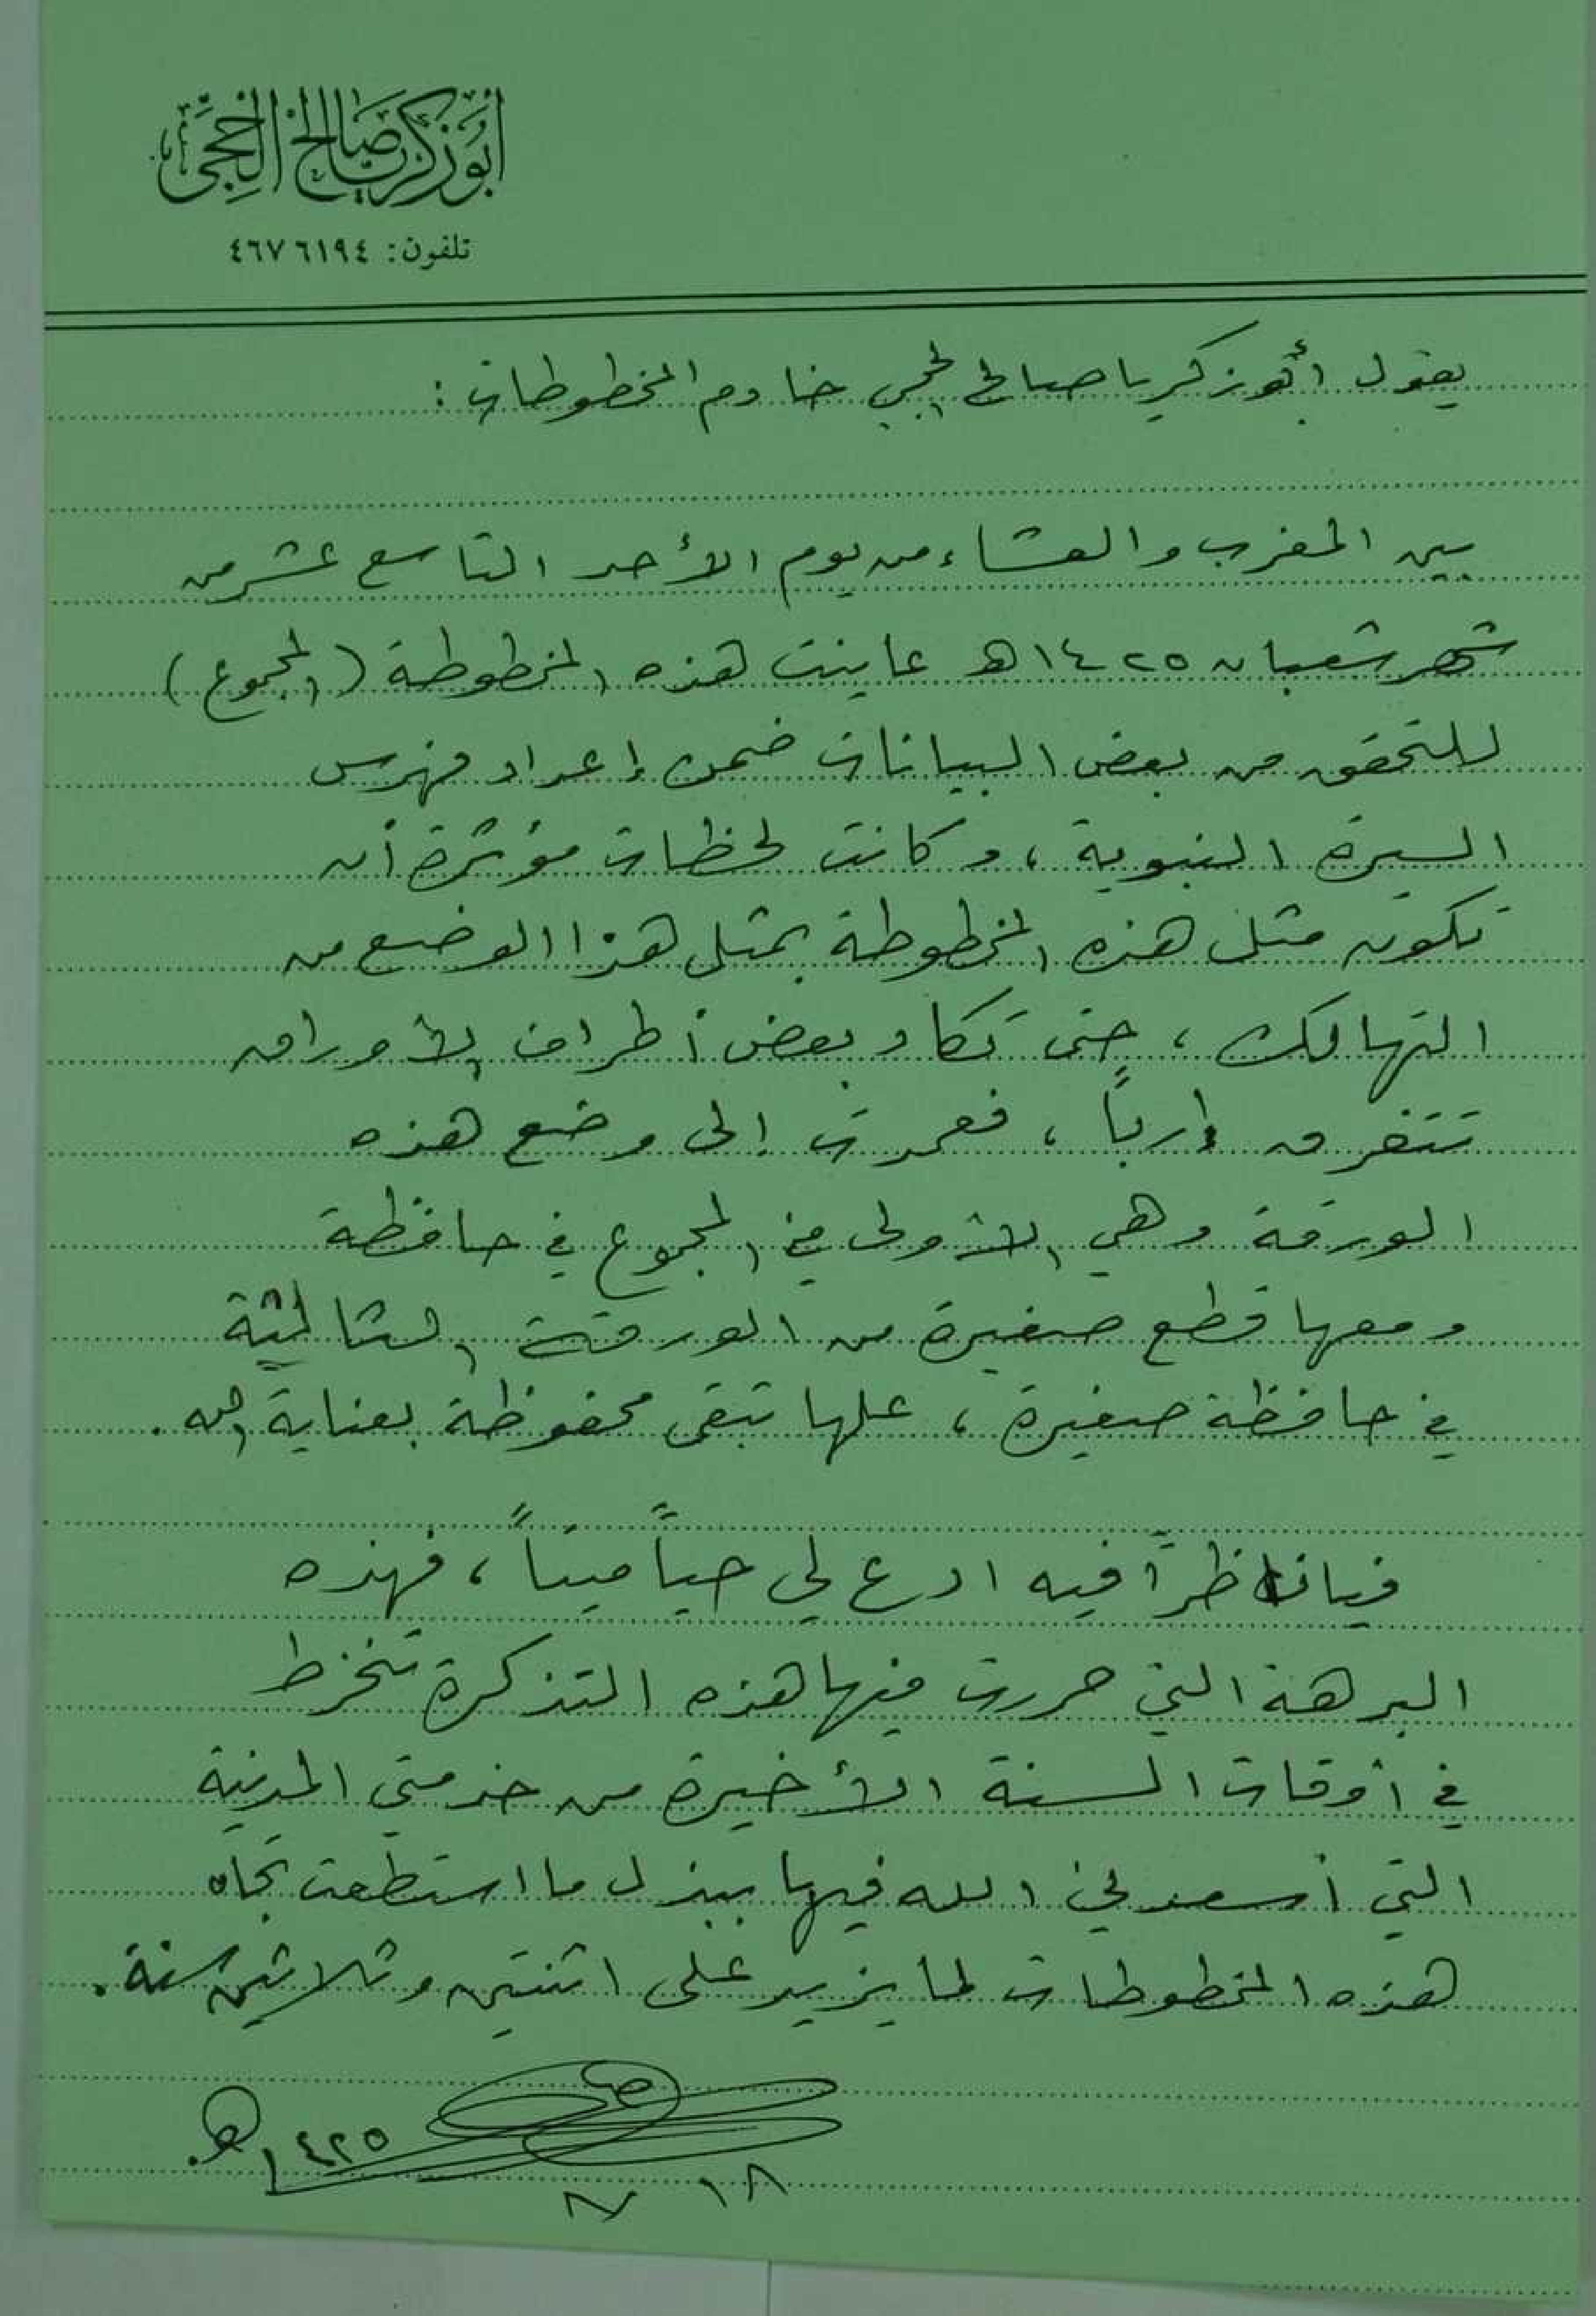 أبو زكريا صالح الحجي
تلفون: ٤٦٧٦١٩٤
يقول أبو زكريا صالح الحجي خادم المخطوطات :
بين المغرب والعشاء من يوم الأحد التاسع عشر من
شهر شعبان ١٤٢٥هـ عاينت هذه المخطوطة (المجموع)
للتحقق من بعض البيانات ضمن إعداد فهرس
السيرة النبوية ، وكانت لحظات مؤثرة أن
تكون مثل هذه المخطوطة بمثل هذا الوضع من
التهالك ، حتى تكاد بعض أطراف الأوراق
تتفرق إرباً ، فعمدت إلى وضع هذه
الورقة وهي الأولى في المجموع في حافظة
ومعها قطع صغيرة من الورقة الثالثة
في حافظة صغيرة ، علها تبقى محفوظة بعناية الله .
فيا ناظراً فيه ادع لي حياً ميتاً ، فهذه
البرهة التي حررت فيها هذه التذكرة تنخرط
في أوقات السنة الأخيرة من خدمتي المدنية
التي أسعدني الله فيها ببذل ما استطعت تجاه
هذه المخطوطات لما يزيد على اثنتين وثلاثين سنة .
١٤٢٥هـ